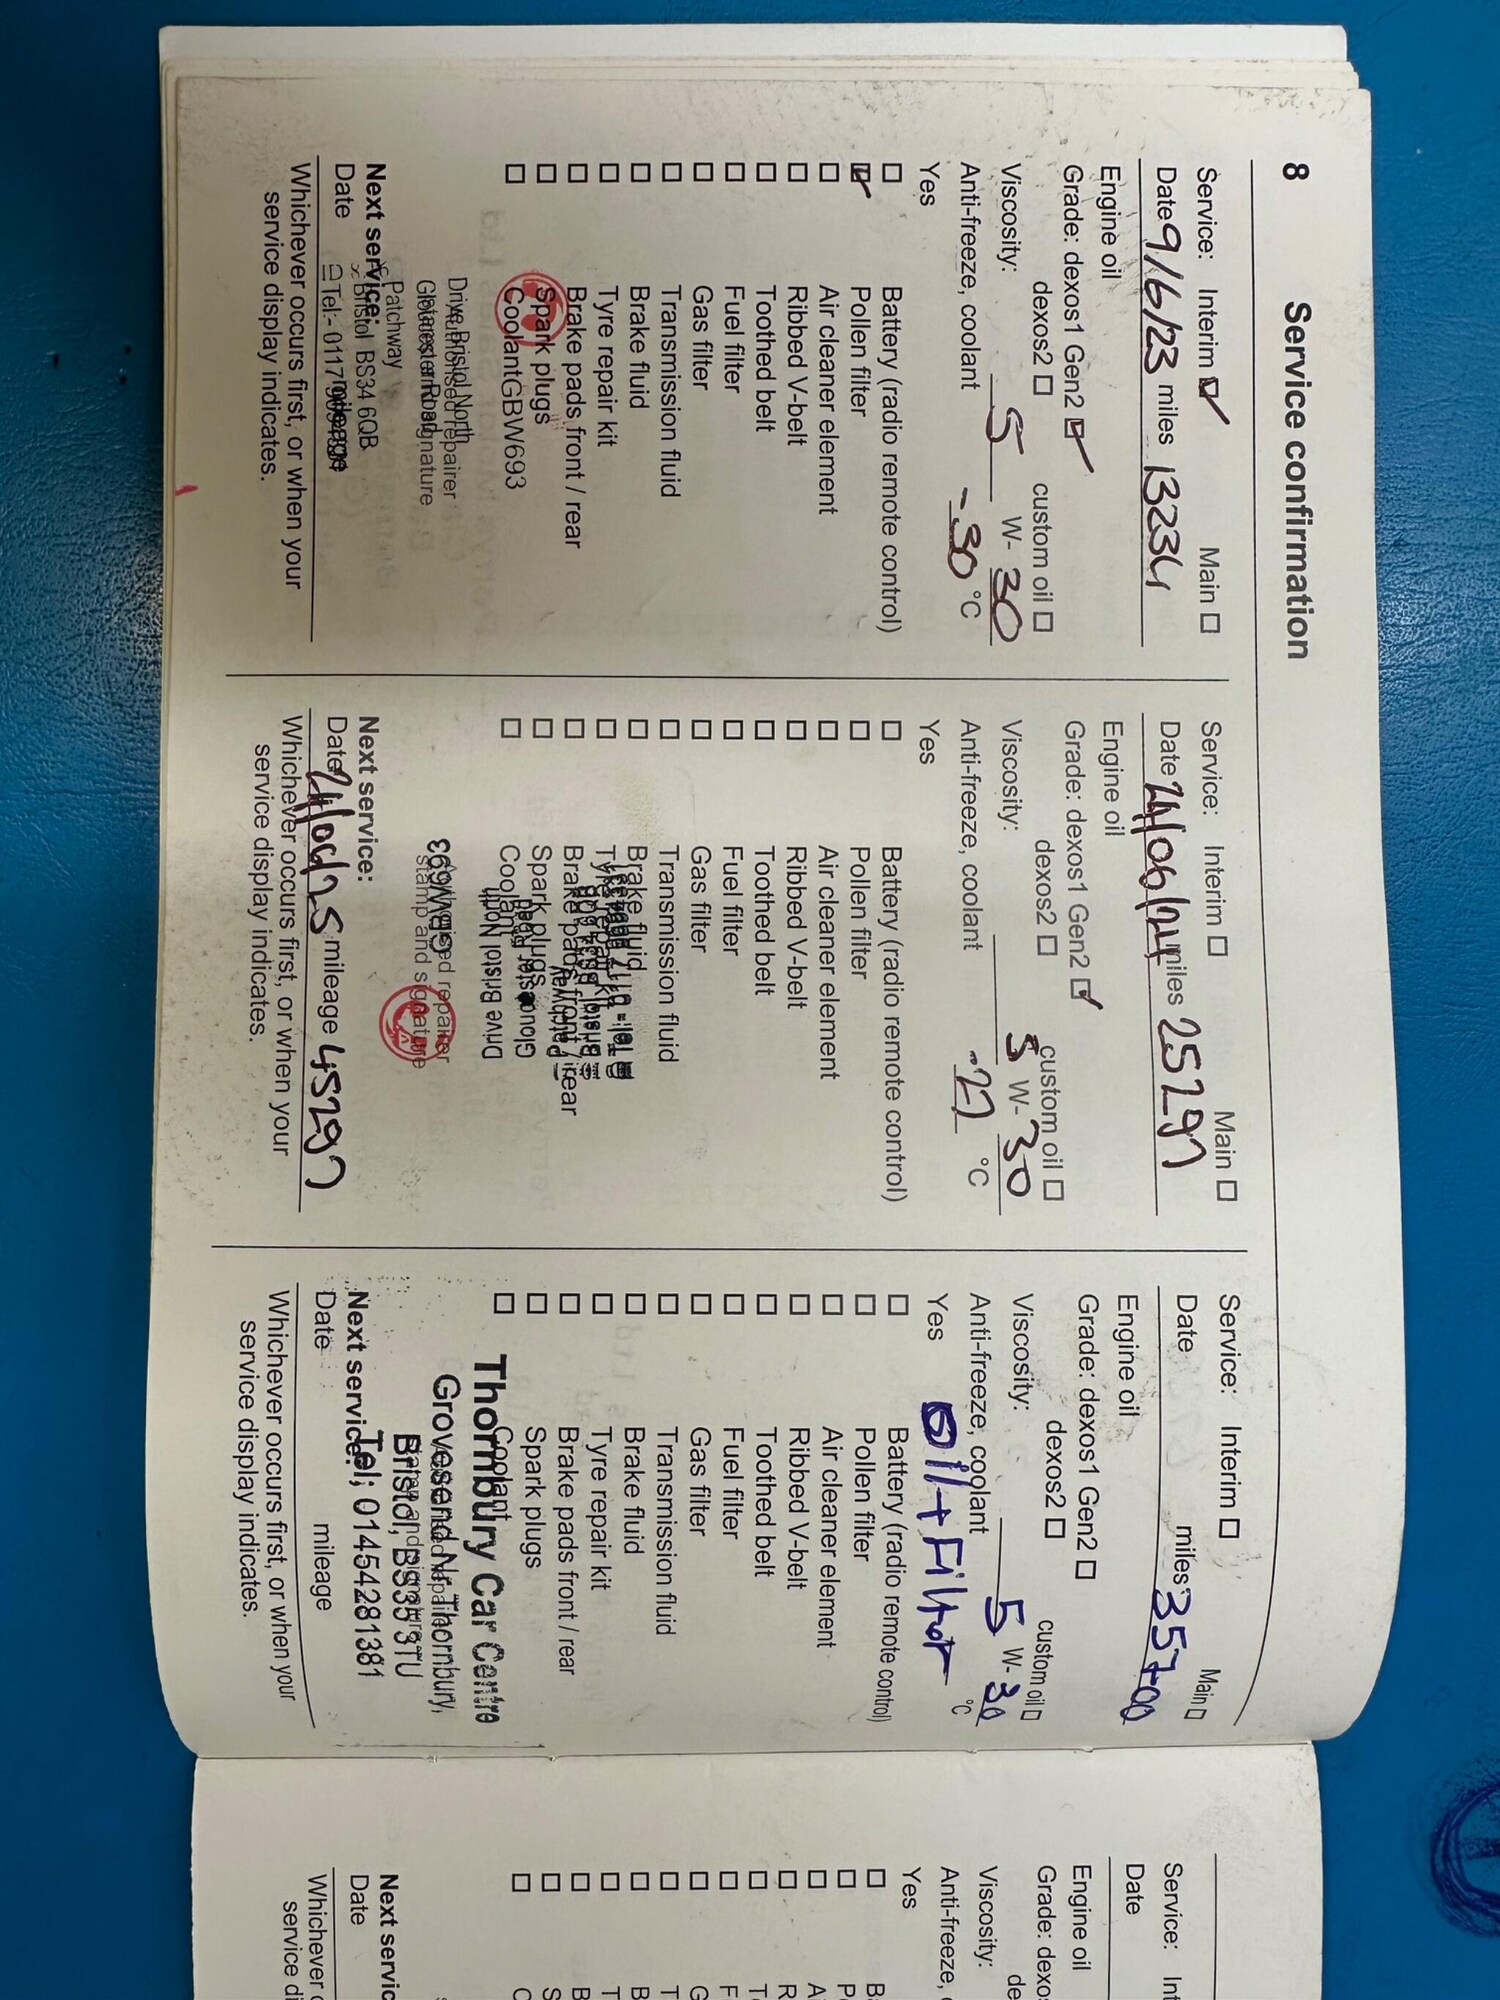 8 Service confirmation
Service: Interim ☑ Main ☐
Date 9/6/23 miles 13234
Engine oil
Grade: dexos1 Gen2 ☑
dexos2 ☐ custom oil ☐
Viscosity: 5 W- 30
Anti-freeze, coolant -30 °C
Yes
☐ Battery (radio remote control)
☑ Pollen filter
☐ Air cleaner element
☐ Ribbed V-belt
☐ Toothed belt
☐ Fuel filter
☐ Gas filter
☐ Transmission fluid
☐ Brake fluid
☐ Tyre repair kit
☐ Brake pads front / rear
☐ Spark plugs
☐ Coolant GBW693
Drive Bristol North
Authorised repairer
Gloucester Road
stamp and signature
Patchway
Next service: Bristol BS34 6QB
Date Tel:- 0117 mileage
Whichever occurs first, or when your
service display indicates.
Service: Interim ☐ Main ☐
Date miles 25297
Engine oil
Grade: dexos1 Gen2 ☑
dexos2 ☐ custom oil ☐
Viscosity: 5 W- 30
Anti-freeze, coolant -27 °C
Yes
☐ Battery (radio remote control)
☐ Pollen filter
☐ Air cleaner element
☐ Ribbed V-belt
☐ Toothed belt
☐ Fuel filter
☐ Gas filter
☐ Transmission fluid
☐ Brake fluid
☐ Tyre repair kit
☐ Brake pads front / rear
☐ Spark plugs
☐ Coolant
Tel:- 0117
Bristol BS34 6QB
Patchway
Gloucester Road
Drive Bristol North
GBW693
Authorised repairer
stamp and signature
Next service:
Date mileage 45297
Whichever occurs first, or when your
service display indicates.
Service: Interim ☐ Main ☐
Date miles 35700
Engine oil
Grade: dexos1 Gen2 ☐
dexos2 ☐ custom oil ☐
Viscosity: 5 W- 30
Anti-freeze, coolant °C
Yes Oil + Filter
☐ Battery (radio remote control)
☐ Pollen filter
☐ Air cleaner element
☐ Ribbed V-belt
☐ Toothed belt
☐ Fuel filter
☐ Gas filter
☐ Transmission fluid
☐ Brake fluid
☐ Tyre repair kit
☐ Brake pads front / rear
☐ Spark plugs
☐ Coolant
Thornbury Car Centre
Grovesend Nr Thornbury,
Bristol, BS35 3TU
Tel; 01454281381
Next service:
Date mileage
Whichever occurs first, or when your
service display indicates.
Service: Int
Date
Engine oil
Grade: dexos
de
Viscosity:
Anti-freeze,
Yes
☐ Ba
☐ P
☐ A
☐ R
☐ T
☐ F
☐ G
☐ T
☐ B
☐ T
☐ B
☐ S
☐ C
Next servic
Date
Whichever
service di